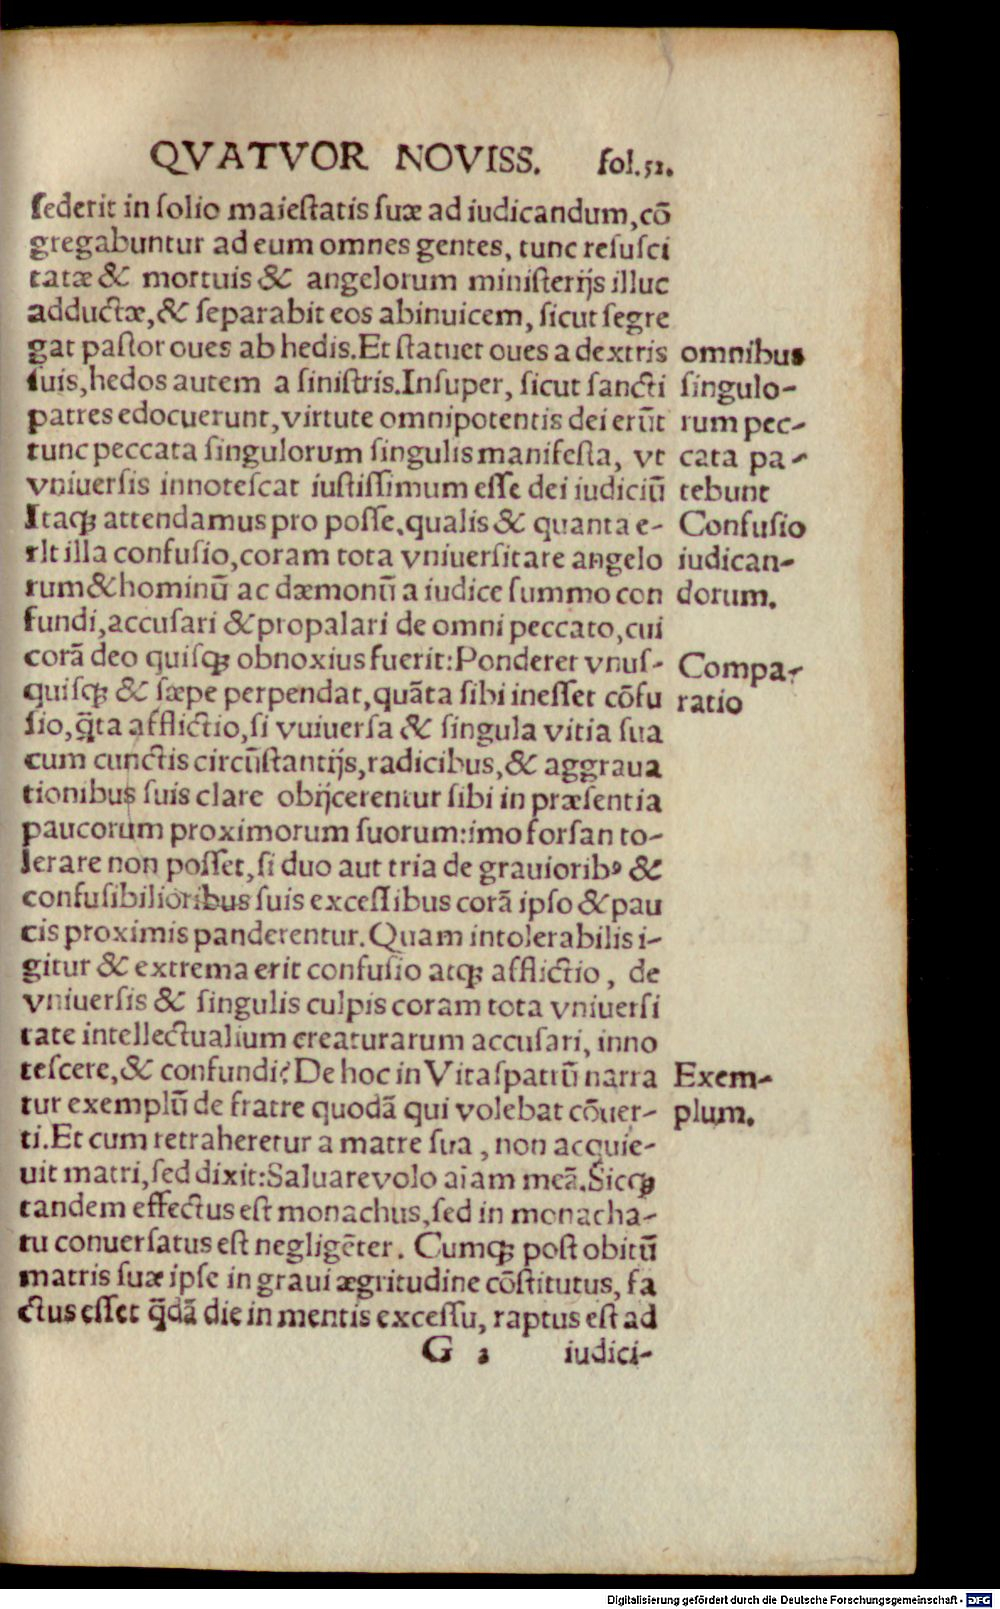 QVATVOR NOVISS. fol.52.
ſederit in ſolio maieſtatis ſuæ ad iudicandum,cõ
gregabuntur ad eum omnes gentes, tunc reſuſci
tatæ & mortuis & angelorum miniſterijs illuc
adductæ,& ſeparabit eos abinuicem, ſicut ſegre
gat paſtor oues ab hedis.Et ſtatuet oues a dextris
ſuis,hedos autem a ſiniſtris.Inſuper, ſicut ſancti
patres edocuerunt,virtute omnipotentis dei erũt
tunc peccata ſingulorum ſingulis manifeſta, vt
vniuerſis innoteſcat iuſtiſſimum eſſe dei iudiciũ
Itaqꝫ attendamus pro poſſe,qualis & quanta e-
rIt illa confuſio,coram tota vniuerſitate angelo
rum&hominũ ac dæmonũ a iudice ſummo con
fundi,accuſari &propalari de omni peccato,cui
corã deo quiſqꝫ obnoxius fuerit:Ponderet vnuſ-
quiſqꝫ & ſæpe perpendat,quãta ſibi ineſſet cõfu
ſio,q̃ta afflictio,ſi vuiuerſa & ſingula vitia ſua
cum cunctis circũſtantijs,radicibus,& aggraua
tionibus ſuis clare obijcerentur ſibi in præſentia
paucorum proximorum ſuorum:imo forſan to-
lerare non poſſet,ſi duo aut tria de grauioribꝰ &
confuſibilioribus ſuis exceſſibus corã ipſo &pau
cis proximis panderentur.Quam intolerabilis i-
gitur & extrema erit confuſio atqꝫ afflictio, de
vniuerſis & ſingulis culpis coram tota vniuerſi
tate intellectualium creaturarum accuſari, inno
teſcere,& confundi?De hoc in Vitaſpatrũ narra
tur exemplũ de fratre quodã qui volebat cõuer-
ti.Et cum retraheretur a matre ſua, non acquie-
uit matri,ſed dixit:Saluare volo aiam meã.Sicqꝫ
tandem effectus eſt monachus,ſed in monacha-
tu conuerſatus eſt negligẽter. Cumqꝫ poſt obitũ
matris ſuæ ipſe in graui ægritudine cõſtitutus, fa
ctus eſſet q̃dã die in mentis exceſſu, raptus eſt ad
G 2 iudici-
omnibus
ſingulo-
rum pec-
cata pa-
tebunt
Confuſio
iudican-
dorum.
Compa-
ratio
Exem-
plum.
Digitalisierung gefördert durch die Deutsche Forschungsgemeinschaft - DFG